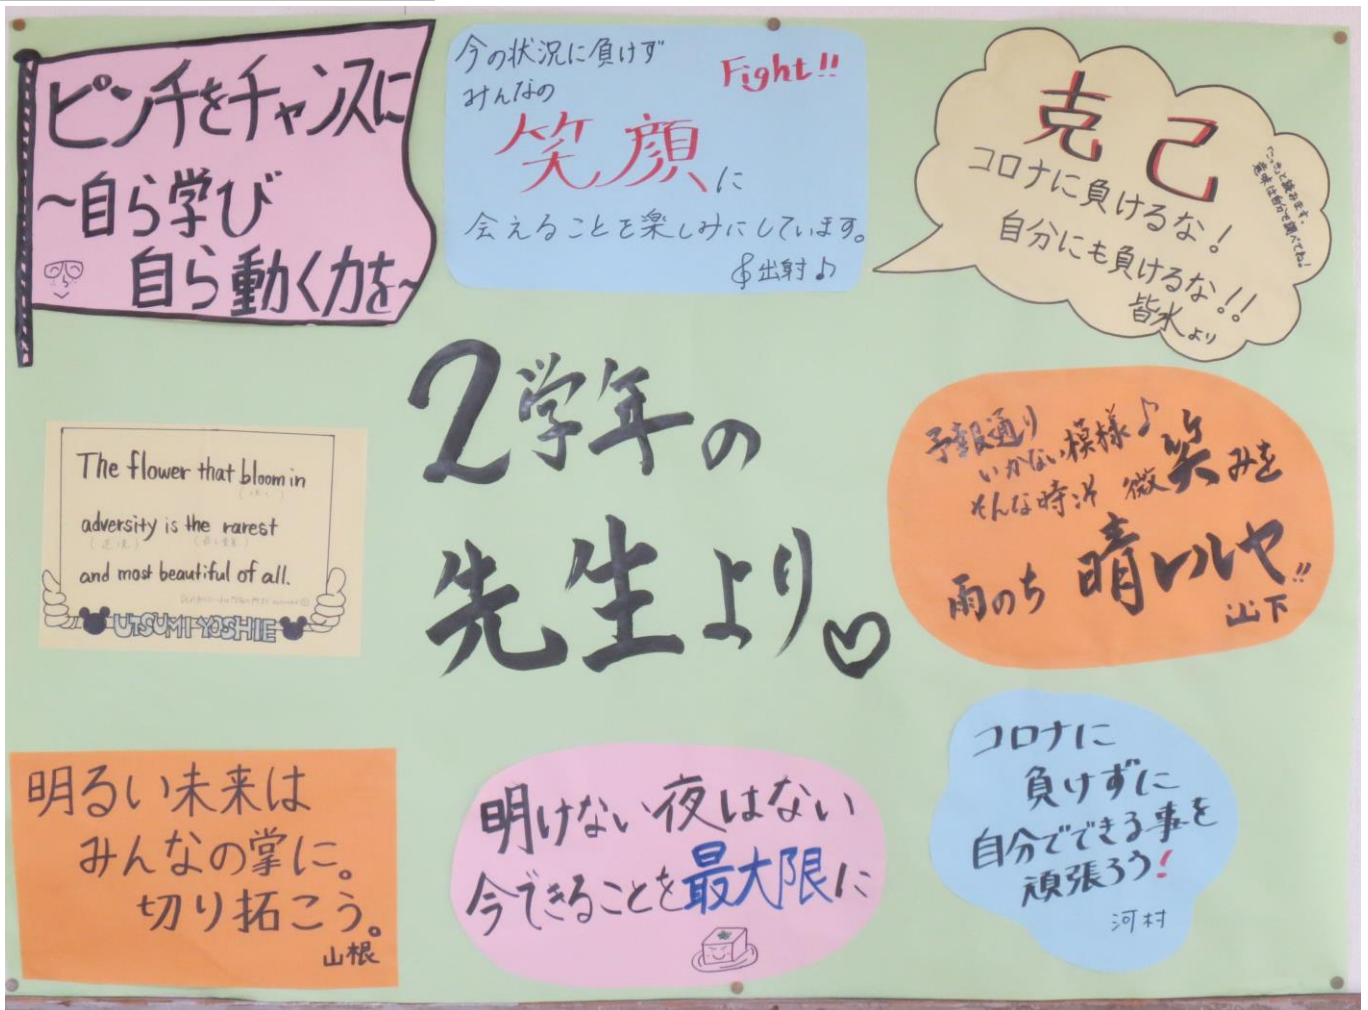 ピンチをチャンスに
～自ら学び
自ら動く力を～
今の状況に負けず
みんなの
Fight!!
笑顔に
会えることを楽しみにしています。
出射♪
克己
コロナに負けるな！
自分にも負けるな!!
皆水より
2学年の
先生より。
The flower that bloom in
adversity is the rarest
and most beautiful of all.
UTSUMI YOSHIE
予報通り
いかない模様♪
そんな時は 微笑みを
雨のち 晴レルヤ!!
山下
明るい未来は
みんなの掌に。
切り拓こう。
山根
明けない夜はない
今できることを最大限に
コロナに
負けずに
自分でできる事を
頑張ろう！
河村